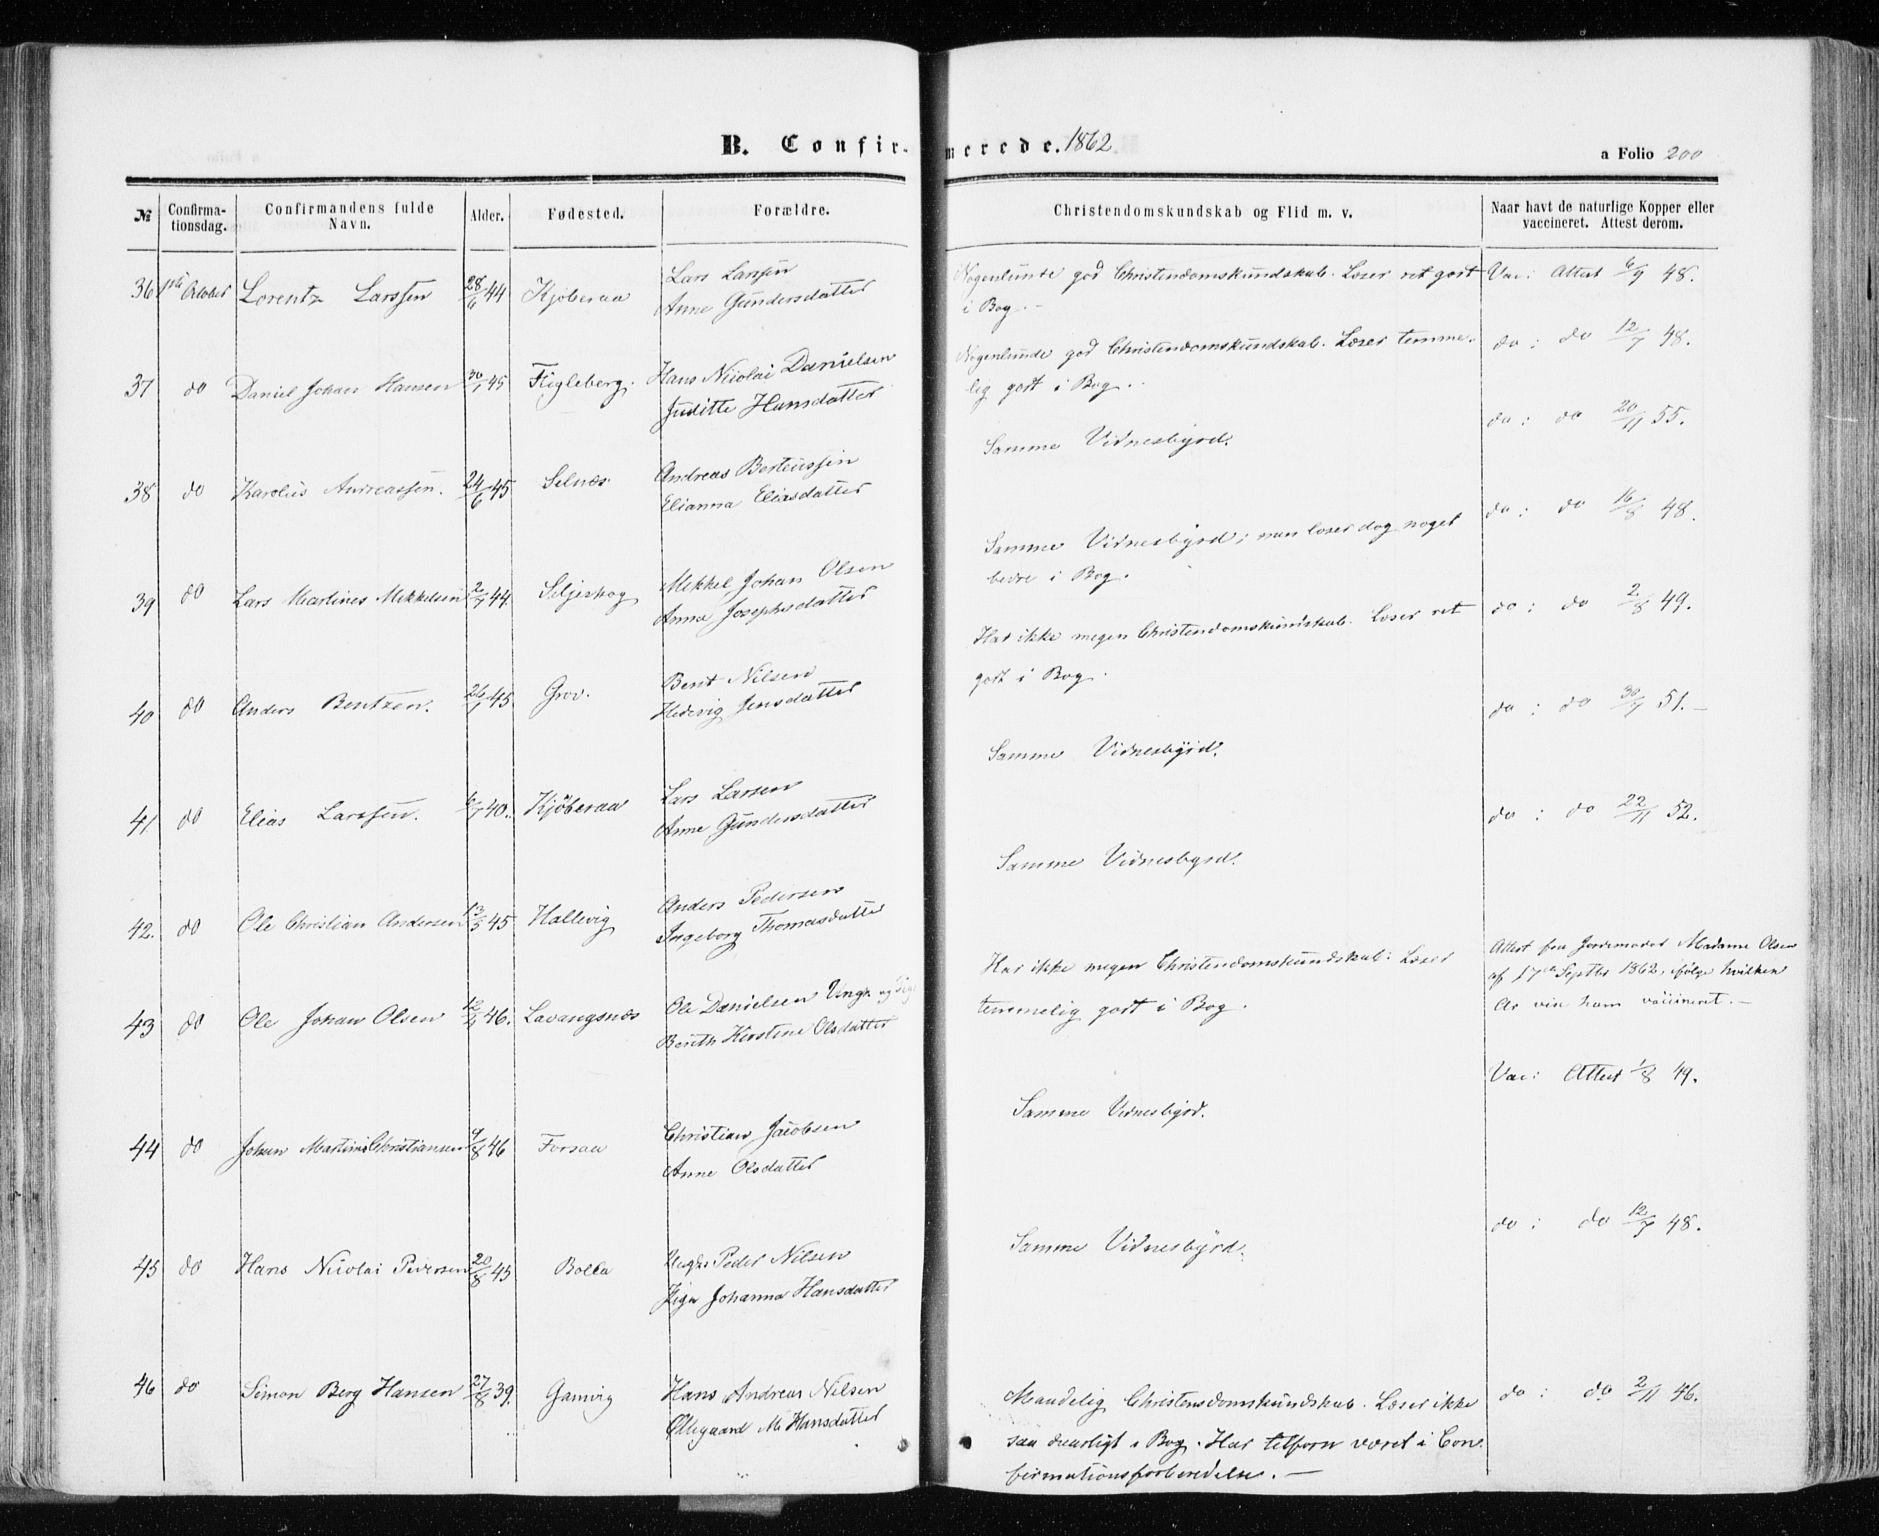 B. Confirmerede. 1862
a Folio 200
№ Confirmationsdag. Confirmandens fulde Navn. Alder. Fødested. Forældre. Christendomskundskab og Flid m. v. Naar havt de naturlige Kopper eller vaccineret. Attest derom.
36 October Lorentz Larssen 28/6 44 Kjøberaa Lars Larsen
Anne Gundersdatter
Nogenlunde god Christendomskundskab. Læser ret godt
i Bog. -
Vac: Attest 6/9 48.
37 do Daniel Johan Hansen 30/1 45 Fugleberg. Hans Nicolai Danielsen
Juditte Hansdatter
Nogenlunde god Christendomskundskab. Læser temme-
lig godt i Bog.
do: do 12/7 48.
38 do Karolus Andreassen. 24/6 45 Selnæs Andreas Berteussen
Elianna Eliasdatter
Samme Vidnesbyrd.
do: do 20/11 55.
39 do Lars Martines Mikkelsen 2/7 44. Seljeskog Mikkel Johan Olsen
Anna Josephsdatter
Samme Vidnesbyrd; men læser dog noget
bedre i Bog.
do: do 16/8 48.
40 do Anders Bentzen. 26/1 45 Grov. Bent Nilsen
Hedevig Jensdatter
Har ikke megen Christendomskundskab. Læser ret
godt i Bog.
do: do 2/8 49.
41 do Elias Larssen. 6/7 40. Kjøberaa Lars Larsen
Anne Gundersdatter
Samme Vidnesbyrd.
do: do 30/7 51. -
42. do Ole Christian Andersen 13/5 45 Hallevig Anders Pedersen
Ingeborg Thomasdatter
Samme Vidnesbyrd.
do: do 22/11 52.
43 do Ole Johan Olsen 12/4 46. Lavangsnæs Ole Danielsen Ungk. og Pige
Berith Kirstine Olsdatter
Har ikke megen Christendomskundskab. Læser
temmelig godt i Bog.
Attest fra Jordemoder Madame Olsen
af 17de Septbr 1862, ifølge hvilken
Ar ham vaccineret. -
44 do Johan Martinus Christiansen 9/8 46 Forsaa Christian Jacobsen
Anne Olsdatter
Samme Vidnesbyrd.
Vac: Attest 1/8 49.
45 do Hans Nicolai Pedersen 20/8 45 Bolla Ungk. Peder Nilsen
Pige Johanna Hansdatter
Samme Vidnesbyrd.
do: do 12/7 48.
46 do Simon Berg Hansen 27/8 39. Gamvig Hans Andreas Nilsen
Ollegaard M. Hansdatter
Maadelig Christendomskundskab. Læser ikke
saa daarligt i Bog. Har tilforn været i Con-
firmationsforberedelse. -
do: do 2/11 46.